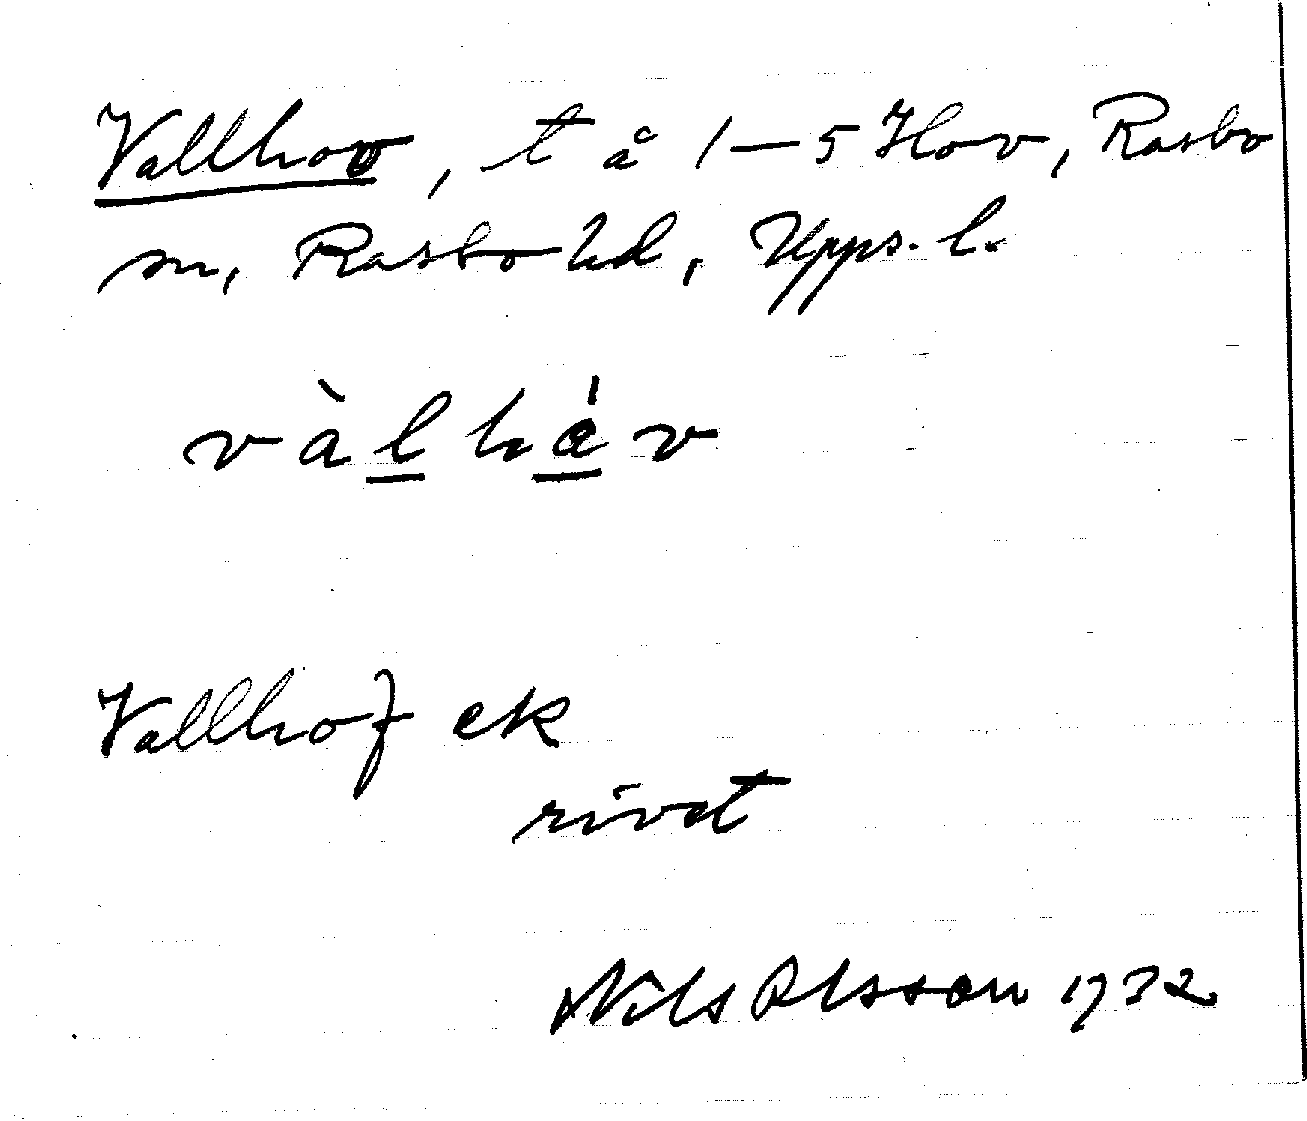 Vallhov, t å 1–5 Hov, Rasbo
sn, Rasbo hd, Upps. l.
vàlhåv
Vallhof ek
rivet
Nils Olsson 1932